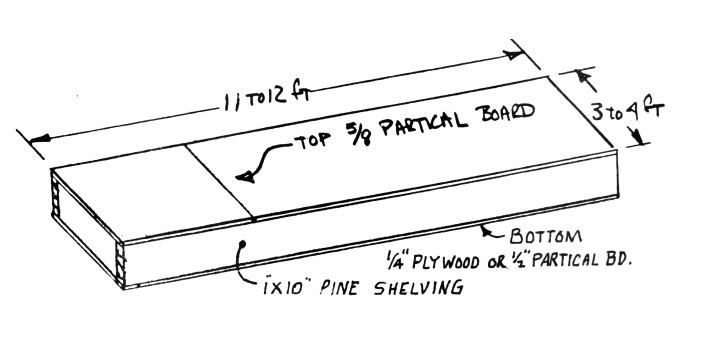 11 TO 12 FT
3 to 4 FT
TOP 5/8 PARTICAL BOARD
BOTTOM
1/4" PLYWOOD OR 1/2" PARTICAL BD.
1"X10" PINE SHELVING